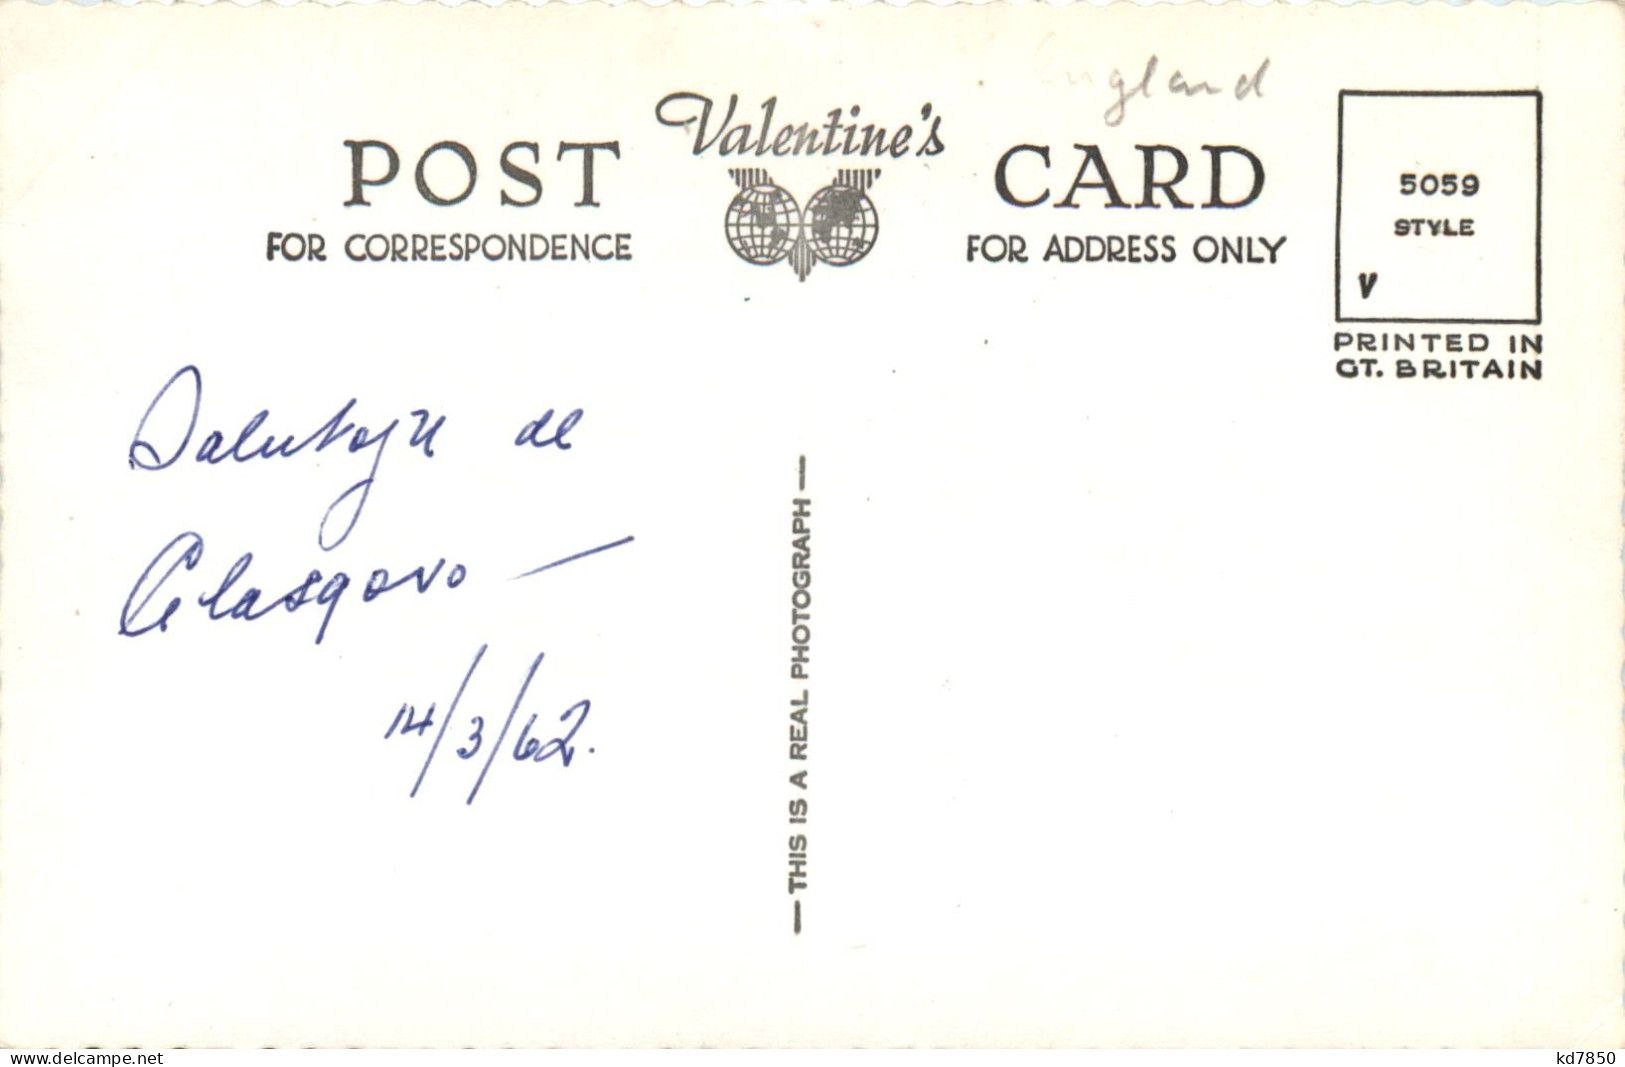 England
Valentine's
POST CARD
FOR CORRESPONDENCE
FOR ADDRESS ONLY
5059
STYLE
V
PRINTED IN
GT. BRITAIN
Salutoju de
Glasgovo —
14/3/62.
— THIS IS A REAL PHOTOGRAPH —
www.delcampe.net
kd7850